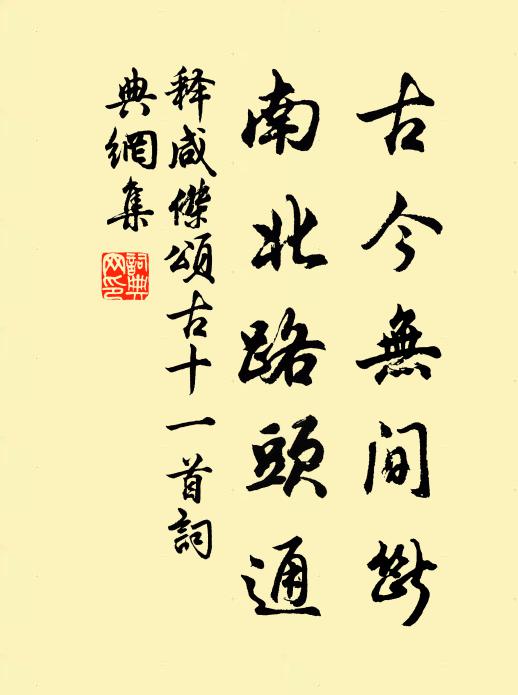 古今無間斷
南北路頭通
释咸傑頌古十一首詞
典網集
詞典
网印